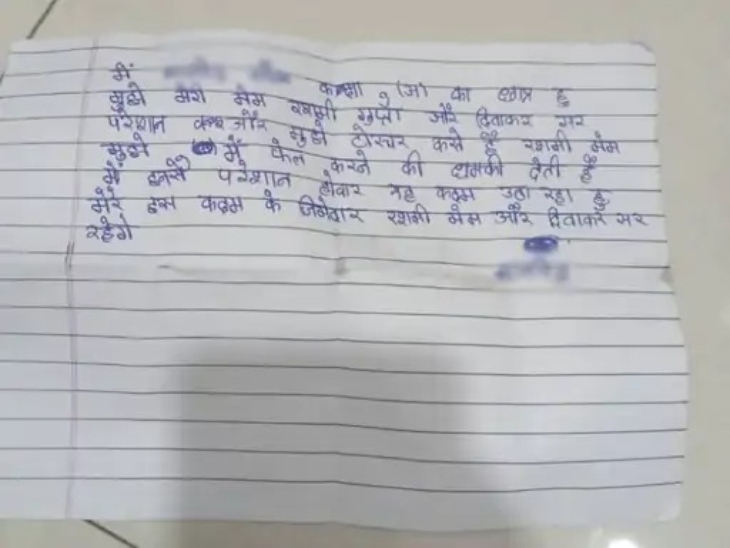 में कक्षा (ज) का छात्र हु
मुझे मेरी मेम रश्मी गुप्ता और दिवाकर सर
परेशान और मुझे टोरचर करते हैं रशमी मेम
मुझे में फेल करने की धमकी देती हैं
में इनसे परेशान होकर यह कदम उठा रहा हु
मेरे इस कदम के जिमेदार रशमी मेम और दिवाकर सर
रहेगे